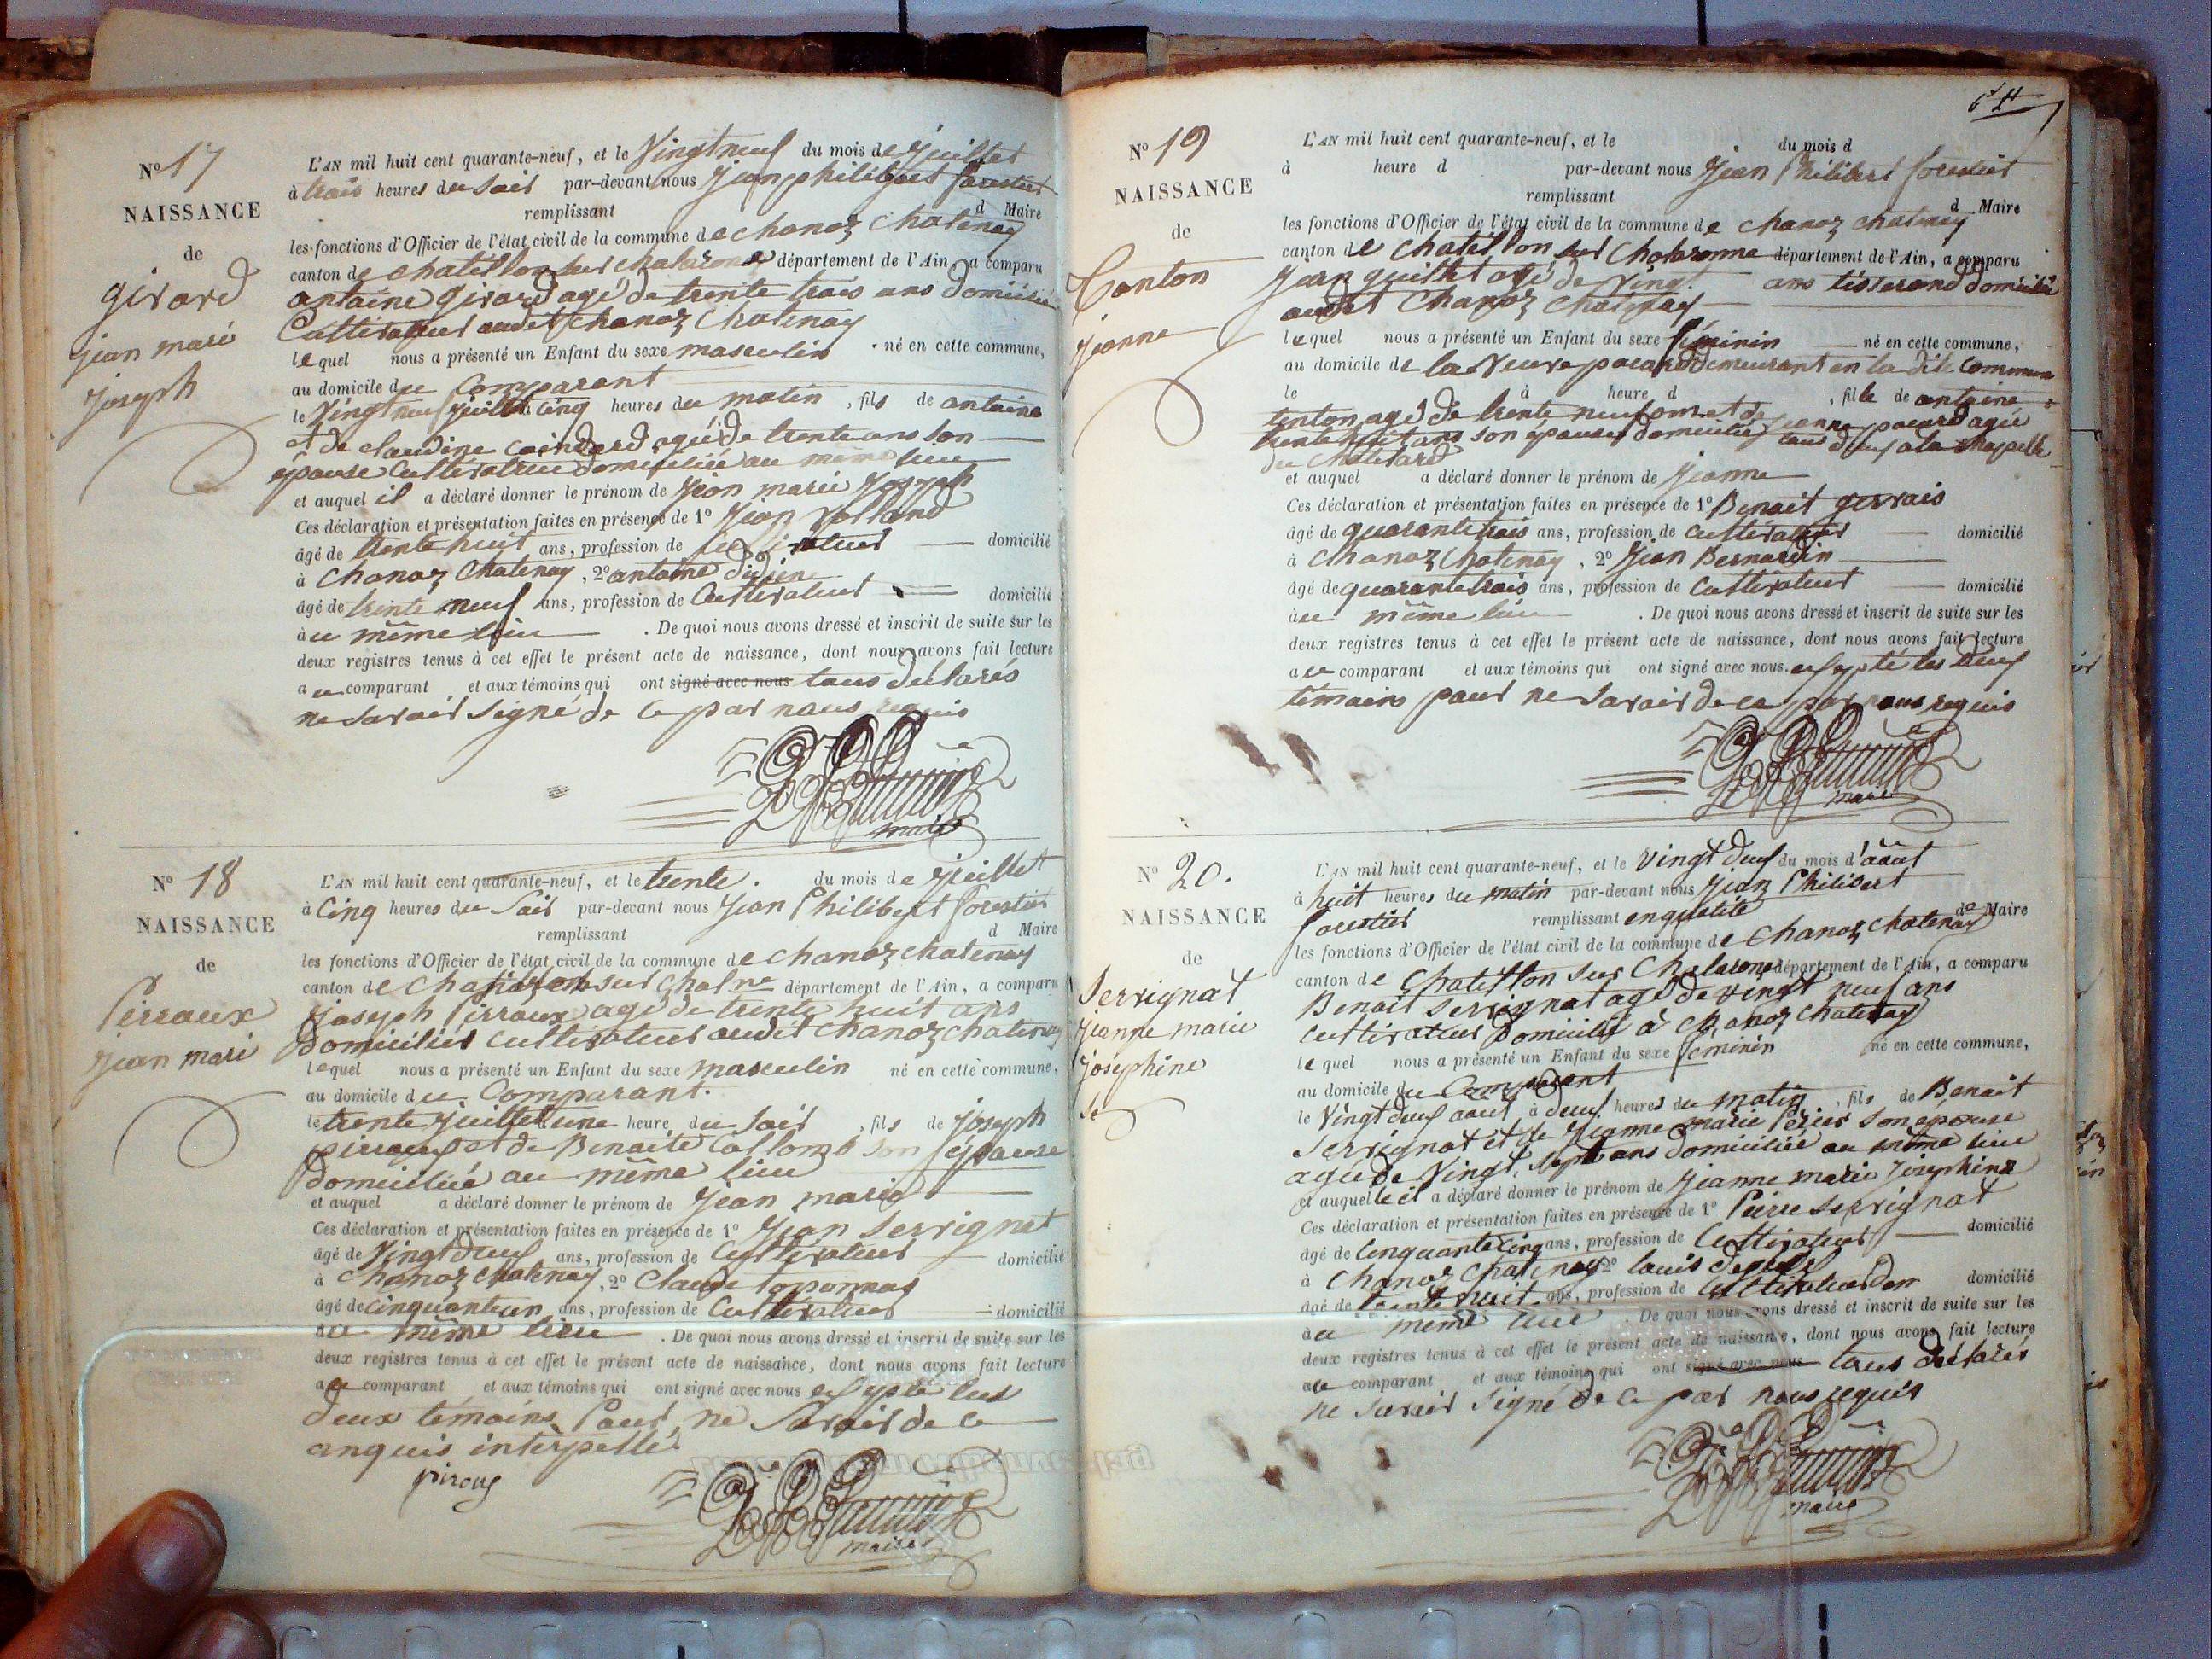 N° 17
NAISSANCE
de
girard
jean marie
joseph
L'AN mil huit cent quarante-neuf, et le Vingt neuf du mois de juillet
à trois heures du soir par-devant nous Jean philibert forestier
remplissant d Maire
les fonctions d'Officier de l'état civil de la commune de chanoz chatenay
canton de chatillon sur chalaronne département de l'Ain, a comparu
antoine girard agé de trente trois ans domicilié
Cultivateur audit chanoz chatenay
lequel nous a présenté un Enfant du sexe masculin né en cette commune,
au domicile du Comparant
le Vingt neuf juillet cinq heures du matin, fils de antoine
et de claudine agée de trente ans son
épouse cultivatrice domiciliée au même lieu
et auquel il a déclaré donner le prénom de Jean marie Joseph
Ces déclaration et présentation faites en présence de 1° Jean Volland
âgé de trente huit ans, profession de cultivateur domicilié
à Chanoz Chatenay, 2° antoine
âgé de trente neuf ans, profession de Cultivateur domicilié
au même lieu. De quoi nous avons dressé et inscrit de suite sur les
deux registres tenus à cet effet le présent acte de naissance, dont nous avons fait lecture
au comparant et aux témoins qui ont signé avec nous tous déclarés
ne savoir signé de ce par nous requis
maire
N° 18
NAISSANCE
de
Pirraux
jean mari
L'AN mil huit cent quarante-neuf, et le trente. du mois de juillet
à Cinq heures du Soir par-devant nous Jean Philibert forestier
remplissant d Maire
les fonctions d'Officier de l'état civil de la commune de chanoz chatenay
canton de Chatillon sur Chalne département de l'Ain, a comparu
joseph Pirraux agé de trente huit ans
domicilier cultivateur audit chanoz chatenay
lequel nous a présenté un Enfant du sexe masculin né en cette commune,
au domicile du Comparant.
le trente juillet une heure du soir, fils de joseph
pirraux et de Benoite Collomb son épouse
domiciliée au même lieu
et auquel a déclaré donner le prénom de Jean marie
Ces déclaration et présentation faites en présence de 1° Jean Servignat
âgé de Vingt deux ans, profession de Cultivateur domicilié
à Chanoz Chatenay, 2° Claude
âgé de cinquante un ans, profession de Cultivateur domicilié
au même lieu. De quoi nous avons dressé et inscrit de suite sur les
deux registres tenus à cet effet le présent acte de naissance, dont nous avons fait lecture
au comparant et aux témoins qui ont signé avec nous exsypté les
deux témoins Pour ne Savoir de ce
anquis interpellé
piroux
maire
N° 19
NAISSANCE
de
Tonton
jeanne
L'AN mil huit cent quarante-neuf, et le du mois d
à heure d par-devant nous Jean Philibert forestier
remplissant d Maire
les fonctions d'Officier de l'état civil de la commune de chanoz chatenay
canton de chatillon sur Chalaronne département de l'Ain, a comparu
Jean guillet agé de Vingt. ans tisserand domicilié
audit Chanoz Chatenay
lequel nous a présenté un Enfant du sexe féminin né en cette commune,
au domicile de la Veuve pacard demeurant en la dite Commune
le à heure d, fille de antoine
tonton agé de trente neuf ans et de jeanne pacard agée
trente huit ans son épouse domiciliés tous deux a la chapelle
du Chatelard
et auquel a déclaré donner le prénom de jeanne
Ces déclaration et présentation faites en présence de 1° Benoit gervais
âgé de quarante trois ans, profession de cultivateur domicilié
à Chanoz Chatenay, 2° Jean Bernardin
âgé de quarante trois ans, profession de Cultivateur domicilié
au même lieu. De quoi nous avons dressé et inscrit de suite sur les
deux registres tenus à cet effet le présent acte de naissance, dont nous avons fait lecture
au comparant et aux témoins qui ont signé avec nous. exsypté les deux
témoins pour ne Savoir de ce par nous requis
maire
N° 20.
NAISSANCE
de
Servignat
jeanne marie
joséphine
L'AN mil huit cent quarante-neuf, et le vingt deux du mois d'août
à huit heures du matin par-devant nous Jean Philibert
forestier remplissant en qualité de Maire
les fonctions d'Officier de l'état civil de la commune de Chanoz chatenay
canton de Chatillon sur Chalaronne département de l'Ain, a comparu
Benoit Servignat agé de vingt neuf ans
cultivateur domicilié à Chanoz chatenay
lequel nous a présenté un Enfant du sexe féminin né en cette commune,
au domicile du Comparant
le Vingt deux aout, à deux heures du matin, fils de Benoit
Servignat et de jeanne marie Périer son epouse
agée de Vingt. sept ans domiciliée au même lieu
et auquelle il a déclaré donner le prénom de Jeanne marie Josephine
Ces déclaration et présentation faites en présence de 1° Pierre Servignat
âgé de Cinquante cinq ans, profession de Cultivateur domicilié
à Chanoz Chatenay 2° louis
âgé de trente huit. ans, profession de Cultivateur domicilié
au même lieu. De quoi nous avons dressé et inscrit de suite sur les
deux registres tenus à cet effet le présent acte de naissance, dont nous avons fait lecture
au comparant et aux témoins qui ont signé avec nous tous déclarés
ne savoir Signé de ce par nous requis
maire